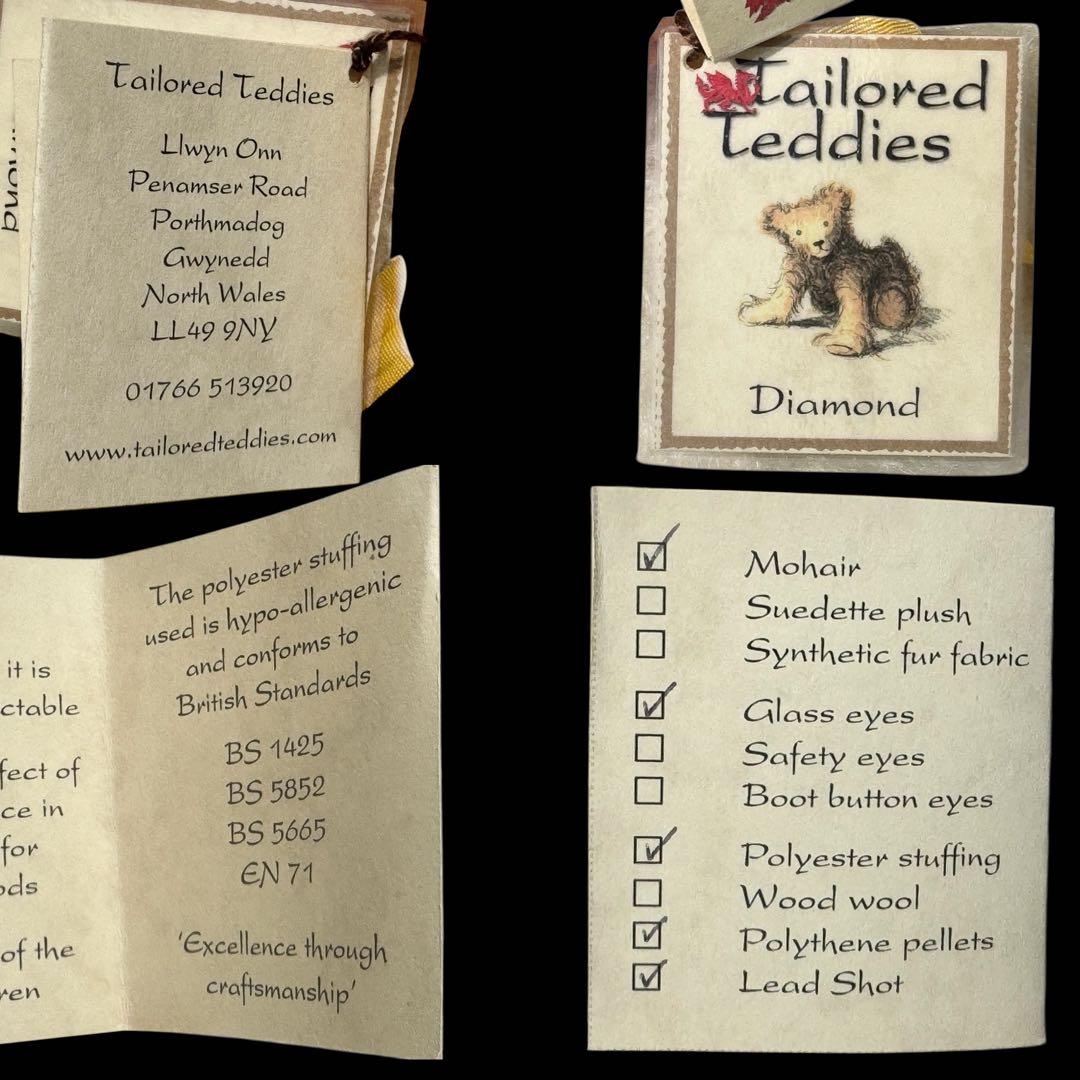 Tailored Teddies
Llwyn Onn
Penamser Road
Porthmadog
Gwynedd
North Wales
LL49 9NY
01766 513920
www.tailoredteddies.com
Tailored
Teddies
Diamond
it is
ctable
fect of
ce in
for
ods
of the
ren
The polyester stuffing
used is hypo-allergenic
and conforms to
British Standards
BS 1425
BS 5852
BS 5665
EN 71
'Excellence through
craftsmanship'
Mohair
Suedette plush
Synthetic fur fabric
Glass eyes
Safety eyes
Boot button eyes
Polyester stuffing
Wood wool
Polythene pellets
Lead Shot